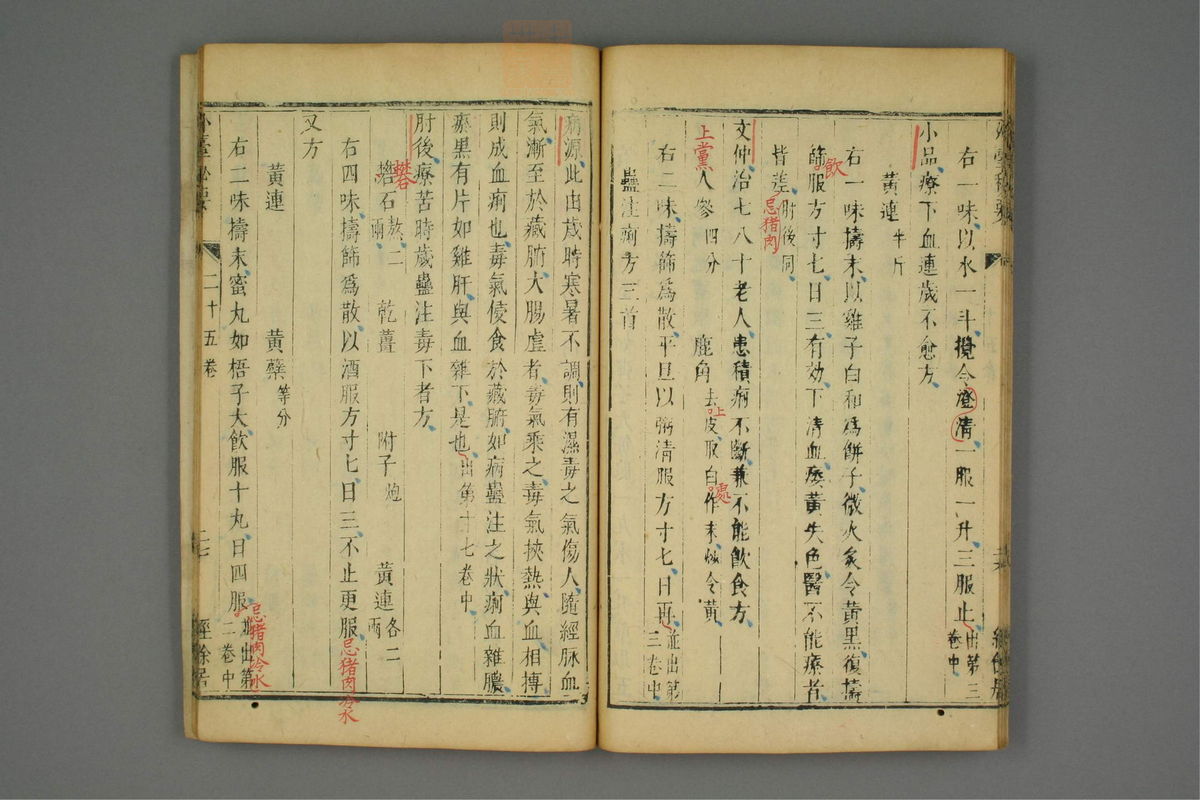 右一味以水一斗攪令澄清一服一升三服止出第三卷中
小品療下血連歲不愈方
黃連半斤
右一味擣末以雞子白和爲餅子微火炙令黃黑復擣
篩服方寸匕日三有効下清血痿黃失色醫不能療者
飲
皆差肘後同
忌猪肉
文仲治七八十老人患積痢不斷兼不能飲食方
上黨人參四分 鹿角去皮取白作末熬令黃
上
處
右二味擣篩爲散平旦以粥清服方寸匕日再並出第三卷中
蠱注痢方三首
病源此由歲時寒暑不調則有濕毒之氣傷人隨經脉血
氣漸至於藏腑大腸虛者毒氣乘之毒氣挾熱與血相搏
則成血痢也毒氣侵食於藏腑如病蠱注之狀痢血雜膿
瘀黑有片如雞肝與血雜下是也出第十七卷中
肘後療苦時歲蠱注毒下者方
礬石熬二兩 乾薑 附子炮 黃連各二兩
礬
右四味擣篩爲散以酒服方寸匕日三不止更服
忌猪肉冷水
又方
黃連 黃蘗等分
右二味擣末蜜丸如梧子大飲服十丸日四服並出第二卷中
忌猪肉冷水
外臺秘要 二十五卷 二七 經餘居